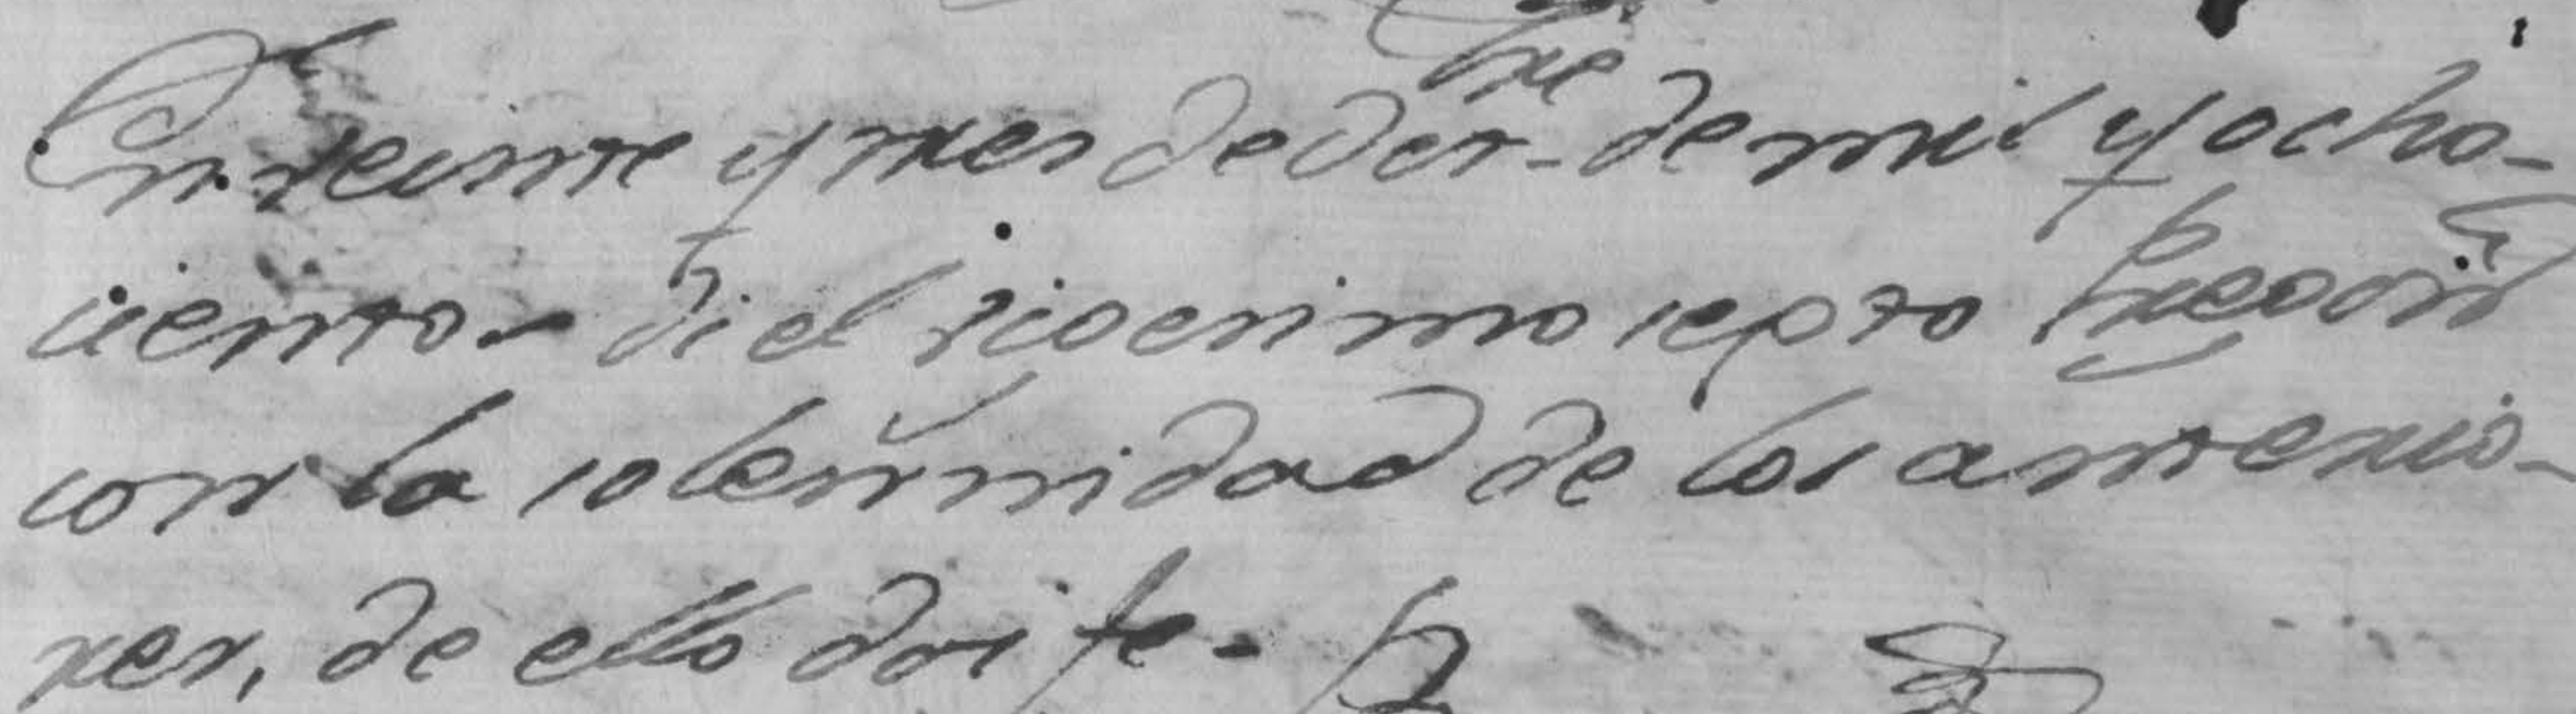 En veinte y tres de Octre de mil y ocho-
cientos di el vicesimo septo Pregon
con la solemnidad de los anterio-
res, de ello doi fe.